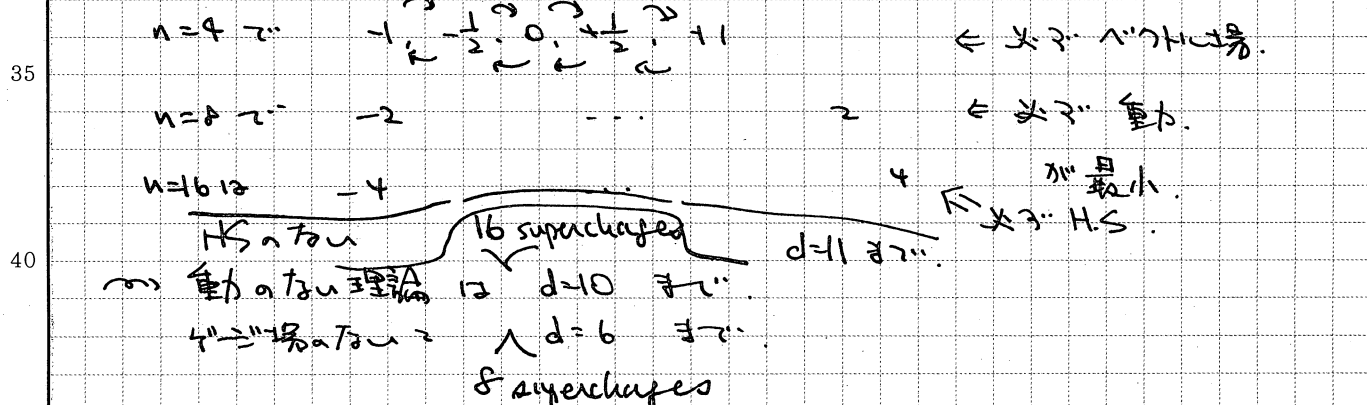 n=4で -1, -1/2, 0, +1/2, +1 ← 必ず ベクトル場.
35
n=8で -2 ... 2 ← 必ず 重力.
n=16は -4 ... 4 が最小.
← 必ず H.S.
HSのない 16 supercharges d=11 まで.
40
⇝ 重力のない理論は d=10 まで.
ゲージ場のない〃 d=6 まで.
8 supercharges